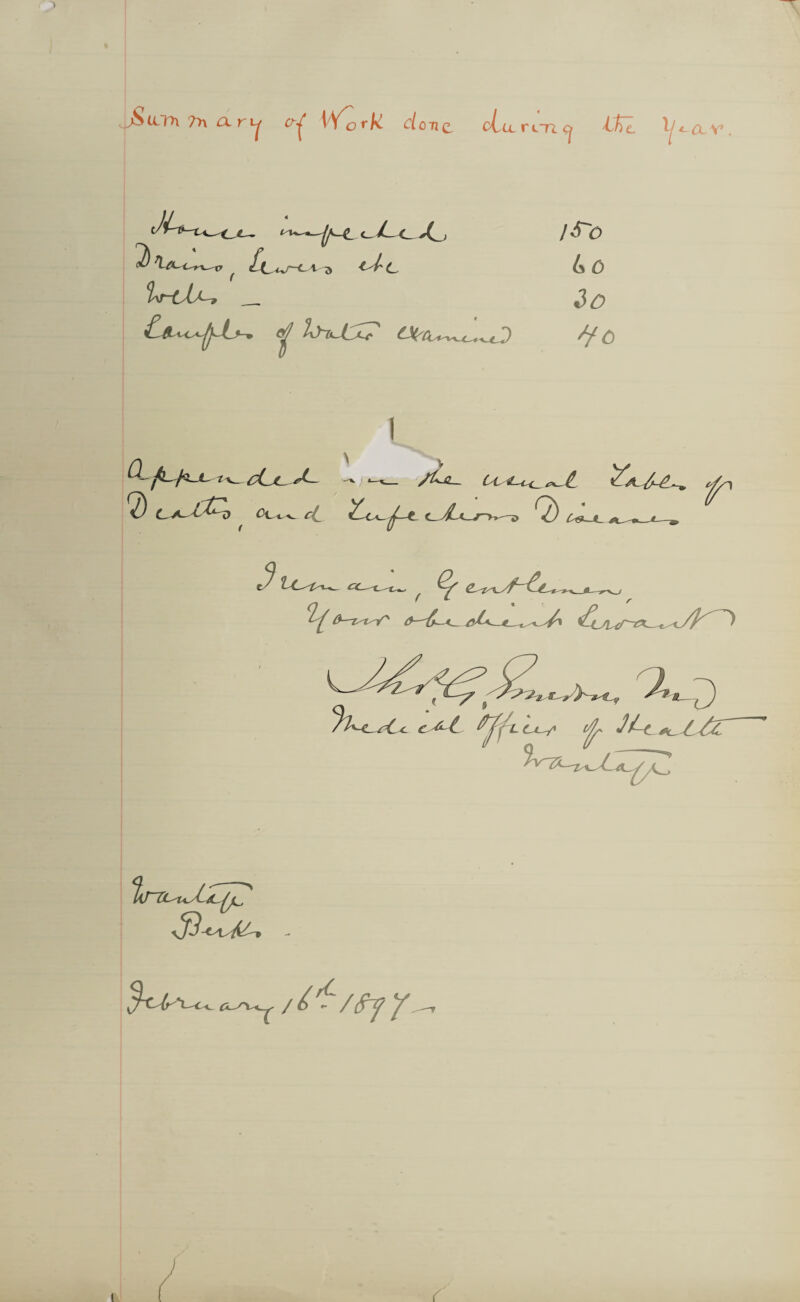 Summary of Work done during the Year.
House inspected 150
Drains, Sewers etc 60
Wells — 30
Samples of Water examined 40
Appended the usual Table of
Deaths, and Infectious Diseases
I remain, Gentlemen,
Your obedient Servant
MD
Medical Officer of Health
Wantage
Wantage
Berks -
February 16th 1897